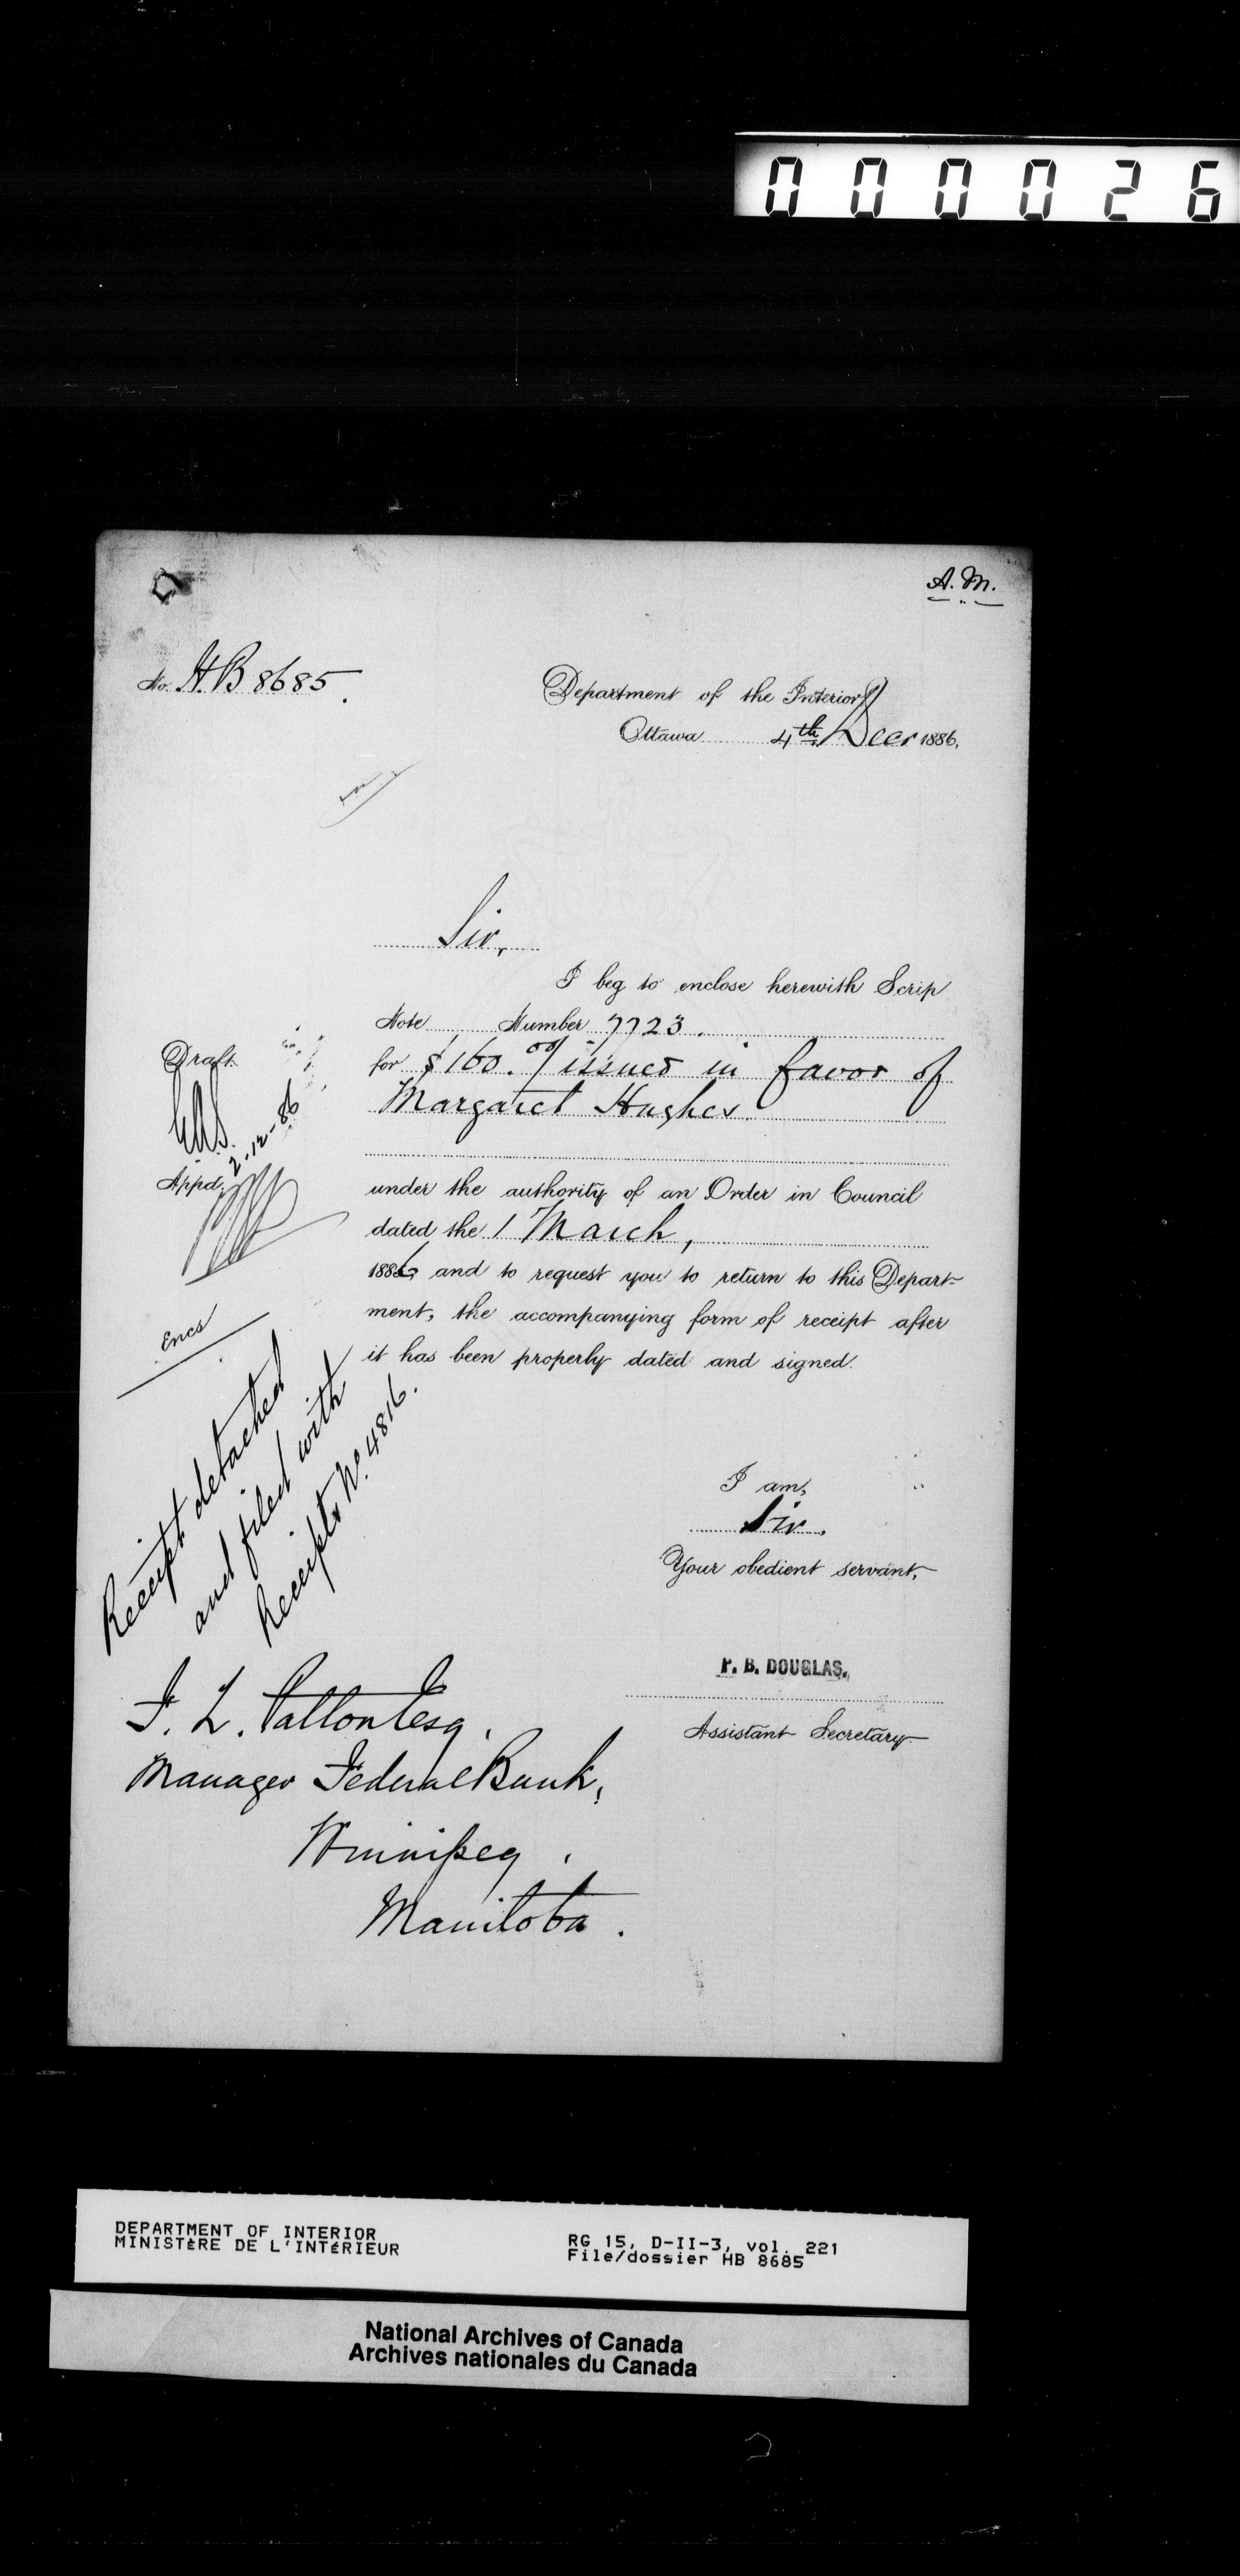 000026
A. M.
No. H.B 8685.
Department of the Interior
Ottawa 4th Decr 1886.
Sir,
I beg to enclose herewith Scrip
Note Number 7723.
for $160.00/ issued in favor of
Margaret Hughes
under the authority of an Order in Council
dated the 1 March,
1886, and to request you to return to this Depart-
ment, the accompanying form of receipt after
it has been properly dated and signed.
Draft.
2-12-86
Appd.
Encs
Receipt detached
and filed with
Receipts No. 4816.
I am,
Sir.
Your obedient servant,
P. B. DOUGLAS,
Assistant Secretary
F. L. Patton Esq.
Manager Federal Bank,
Winnipeg,
Manitoba.
DEPARTMENT OF INTERIOR
MINISTÈRE DE L'INTÉRIEUR
RG 15, D-II-3, vol. 221
File/dossier HB 8685
National Archives of Canada
Archives nationales du Canada